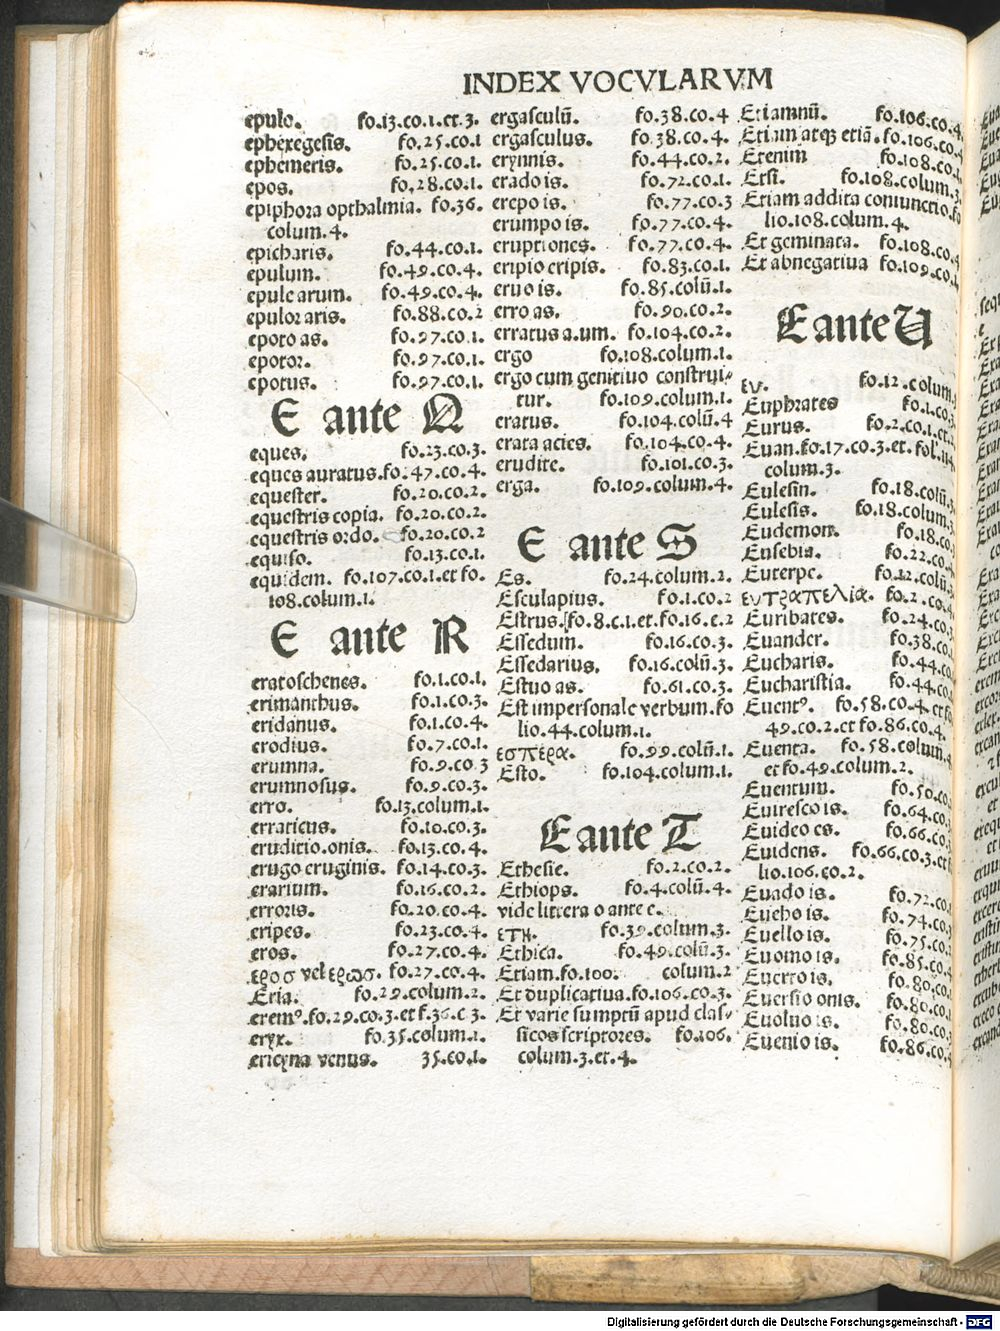 INDEX VOCVLARVM
epulo. fo.13.co.1.et.3.
ephexegesis. fo.25.co.1
ephemeris. fo.25.co.1.
epos. fo.28.co.1.
epiphora opthalmia. fo.36.
colum.4.
epicharis. fo.44.co.1.
epulum. fo.49.co.4.
epule arum. fo.49.co.4.
epulor aris. fo.88.co.2
epoto as. fo.97.co.1.
epotor. fo.97.co.1.
epotus. fo.97.co.1.
E ante Q
eques. fo.23.co.3.
eques auratus.fo.47.co.4.
equester. fo.20.co.2.
equestris copia. fo.20.co.2.
equestris ordo. fo.20.co.2
equiso. fo.13.co.1.
equidem. fo.107.co.1.et fo.
108.colum.1.
E ante R
eratoschenes. fo.1.co.1.
erimanthus. fo.1.co.3.
eridanus. fo.1.co.4.
erodius. fo.7.co.1.
erumna. fo.9.co.3
erumnosus. fo.9.co.3.
erro. fo.13.colum.1.
erraticus. fo.10.co.3.
eruditio.onis. fo.13.co.4.
erugo eruginis. fo.14.co.3.
erarium. fo.16.co.2.
erroris. fo.20.co.4.
eripes. fo.23.co.4.
eros. fo.27.co.4.
ερος vel ερως. fo.27.co.4.
Eria. fo.29.colum.2.
eremꝰ.fo.29.co.3.et f.36.c 3.
eryx. fo.35.colum.1.
ericyna venus. 35.co.1.
ergasculū. fo.38.co.4
ergasculus. fo.38.co.4.
erynnis. fo.44.co.2.
erado is. fo.72.co.1.
erepo is. fo.77.co.3
erumpo is. fo.77.co.4.
eruptiones. fo.77.co.4.
eripio eripis. fo.83.co.1.
eruo is. fo.85.colū.1.
erro as. fo.90.co.2.
erratus a.um. fo.104.co.2.
ergo fo.108.colum.1.
ergo cum genitiuo construi⸗
tur. fo.109.colum.1.
eratus. fo.104.colū.4
erata acies. fo.104.co.4.
erudite. fo.101.co.3.
erga. fo.109.colum.4.
E ante S
Es. fo.24.colum.2.
Esculapius. fo.1.co.2
Estrus.fo.8.c.1.et.fo.16.c.2
Essedum. fo.16.co.3.
Essedarius. fo.16.colū.3.
Estuo as. fo.61.co.3.
Est impersonale verbum.fo
lio.44.colum.1.
εσπερα. fo.99.colū.1.
Esto. fo.104.colum.1.
E ante T
Ethesie. fo.2.co.2.
Ethiops. fo.4.colū.4.
vide littera o ante e.
ετη. fo.39.colum.3.
Ethica. fo.49.colū.3.
Etiam.fo.100. colum.2
Et duplicatiua.fo.106.co.3.
Et varie sumptū apud clas⸗
sicos scriptores. fo.106.
colum.3.et.4.
Etiamnū. fo.106.co.4.
Etiam atqꝫ etiā.fo.106.co.
Etenim fo.108.co.
Etsi. fo.108.colum.3.
Etiam addita coniunctio.fo
lio.108.colum.4.
Et geminata. fo.108.co.4
Et abnegatiua fo.109.co.
E ante U
ευ. fo.12.colum.
Euphrates fo.1.co.
Eurus. fo.2.co.1.et.
Euan.fo.17.co.3.et.fol.
colum.3.
Eulesin. fo.18.colū.
Eulesis. fo.18.colum.
Eudemon. fo.18.co.
Eusebia. fo.22.co.
Euterpe. fo.12.colū.
ευτραπελια. fo.2.co.
Euribates. fo.24.co.
Euander. fo.38.co.
Eucharis. fo.44.co.
Eucharistia. fo.44.co.
Euentꝰ. fo.58.co.4.et fo
49.co.2.et fo.86.co.4.
Euenta. fo.58.colum.
et fo.49.colum.2.
Euentum. fo.50.co.
Euiresco is. fo.64.co.
Euideo es. fo.66.co.
Euidens. fo.66.co.3.et
lio.106.co.2.
Euado is. fo.72.co.
Eueho is. fo.74.co.
Euello is. fo.75.co.
Euomo is. fo.85.co.
Euerro is. fo.80.co.
Euersio onis. fo.80.co.
Euoluo is. fo.80.co.
Euenio is. fo.86.co.
Digitalisierung gefördert durch die Deutsche Forschungsgemeinschaft - DFG